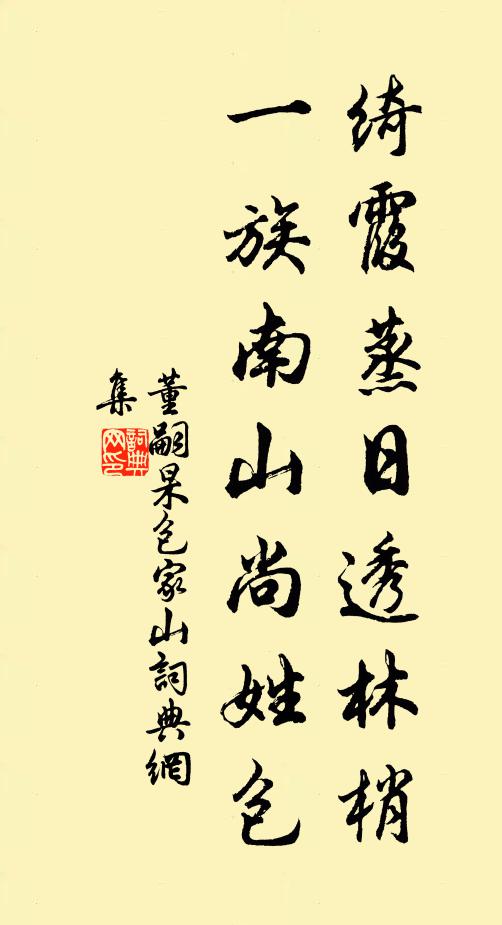 綺霞蒸日透林梢
一族南山尚姓包
董嗣杲包家山詞典網
集
詞典
网印